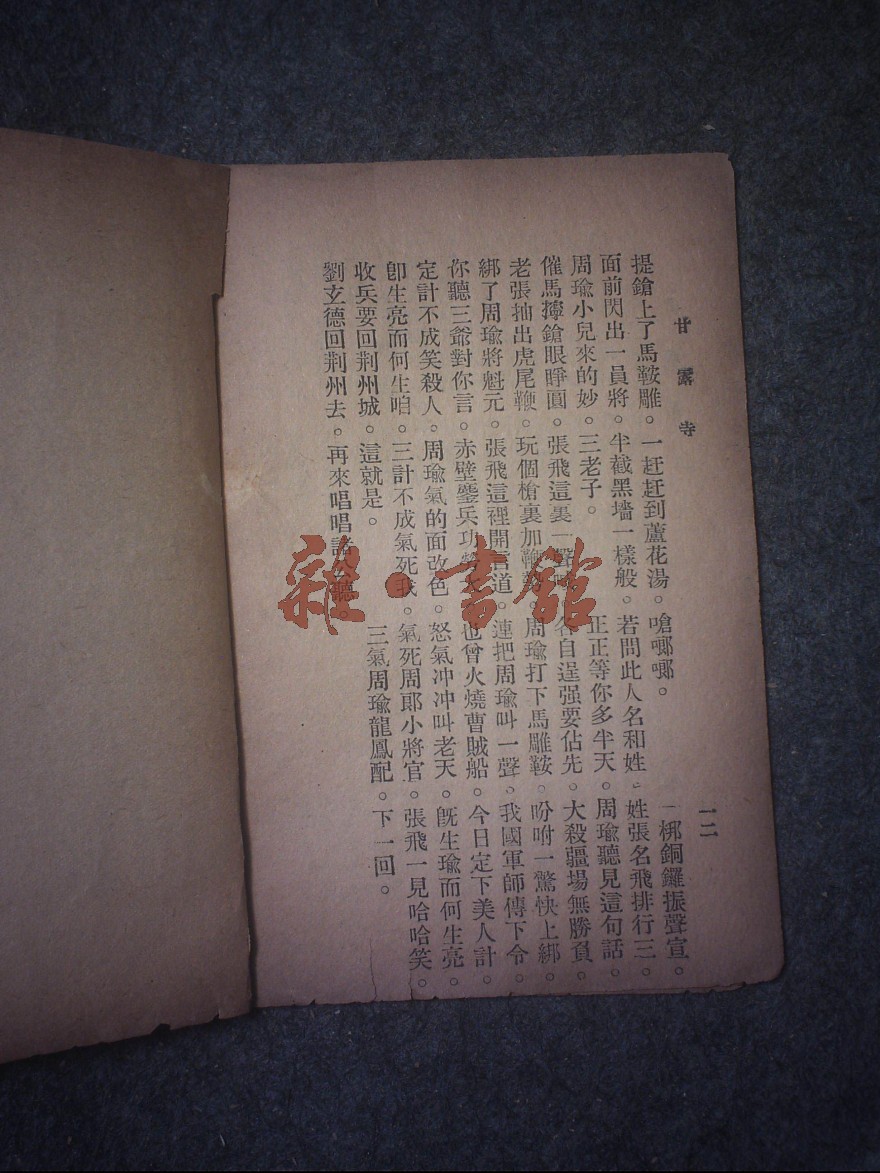 甘露寺
一二
提鎗上了馬鞍雕。一赶赶到蘆花湯。嗆啷啷。一梆銅鑼振聲宣。
面前閃出一員將。半截黑墻一樣般。若問此人名和姓。姓張名飛排行三。
周瑜小兒來的妙。三老子。正正等你多半天。周瑜聽見這句話。
催馬擰鎗眼睜圓。張飛這裏一聲各自逞强要佔先。大殺疆場無勝負。
老張抽出虎尾鞭。玩個槍裏加鞭。周瑜打下馬雕鞍。吩咐一驚快上綁。
綁了周瑜將魁元。張飛這裡開言道。連把周瑜叫一聲。我國軍師傳下令。
你聽三爺對你言。赤壁鏖兵功也曾火燒曹賊船。今日定下美人計。
定計不成笑殺人。周瑜氣的面改色。怒氣冲冲叫老天。旣生瑜而何生亮。
卽生亮而何生咱。三計不成氣死我。氣死周郞小將官。張飛一見哈哈笑。
收兵要回荆州城。這就是。三氣周瑜龍鳳配。下一回。
劉玄德回荆州去。再來唱唱聽。
雜·書館